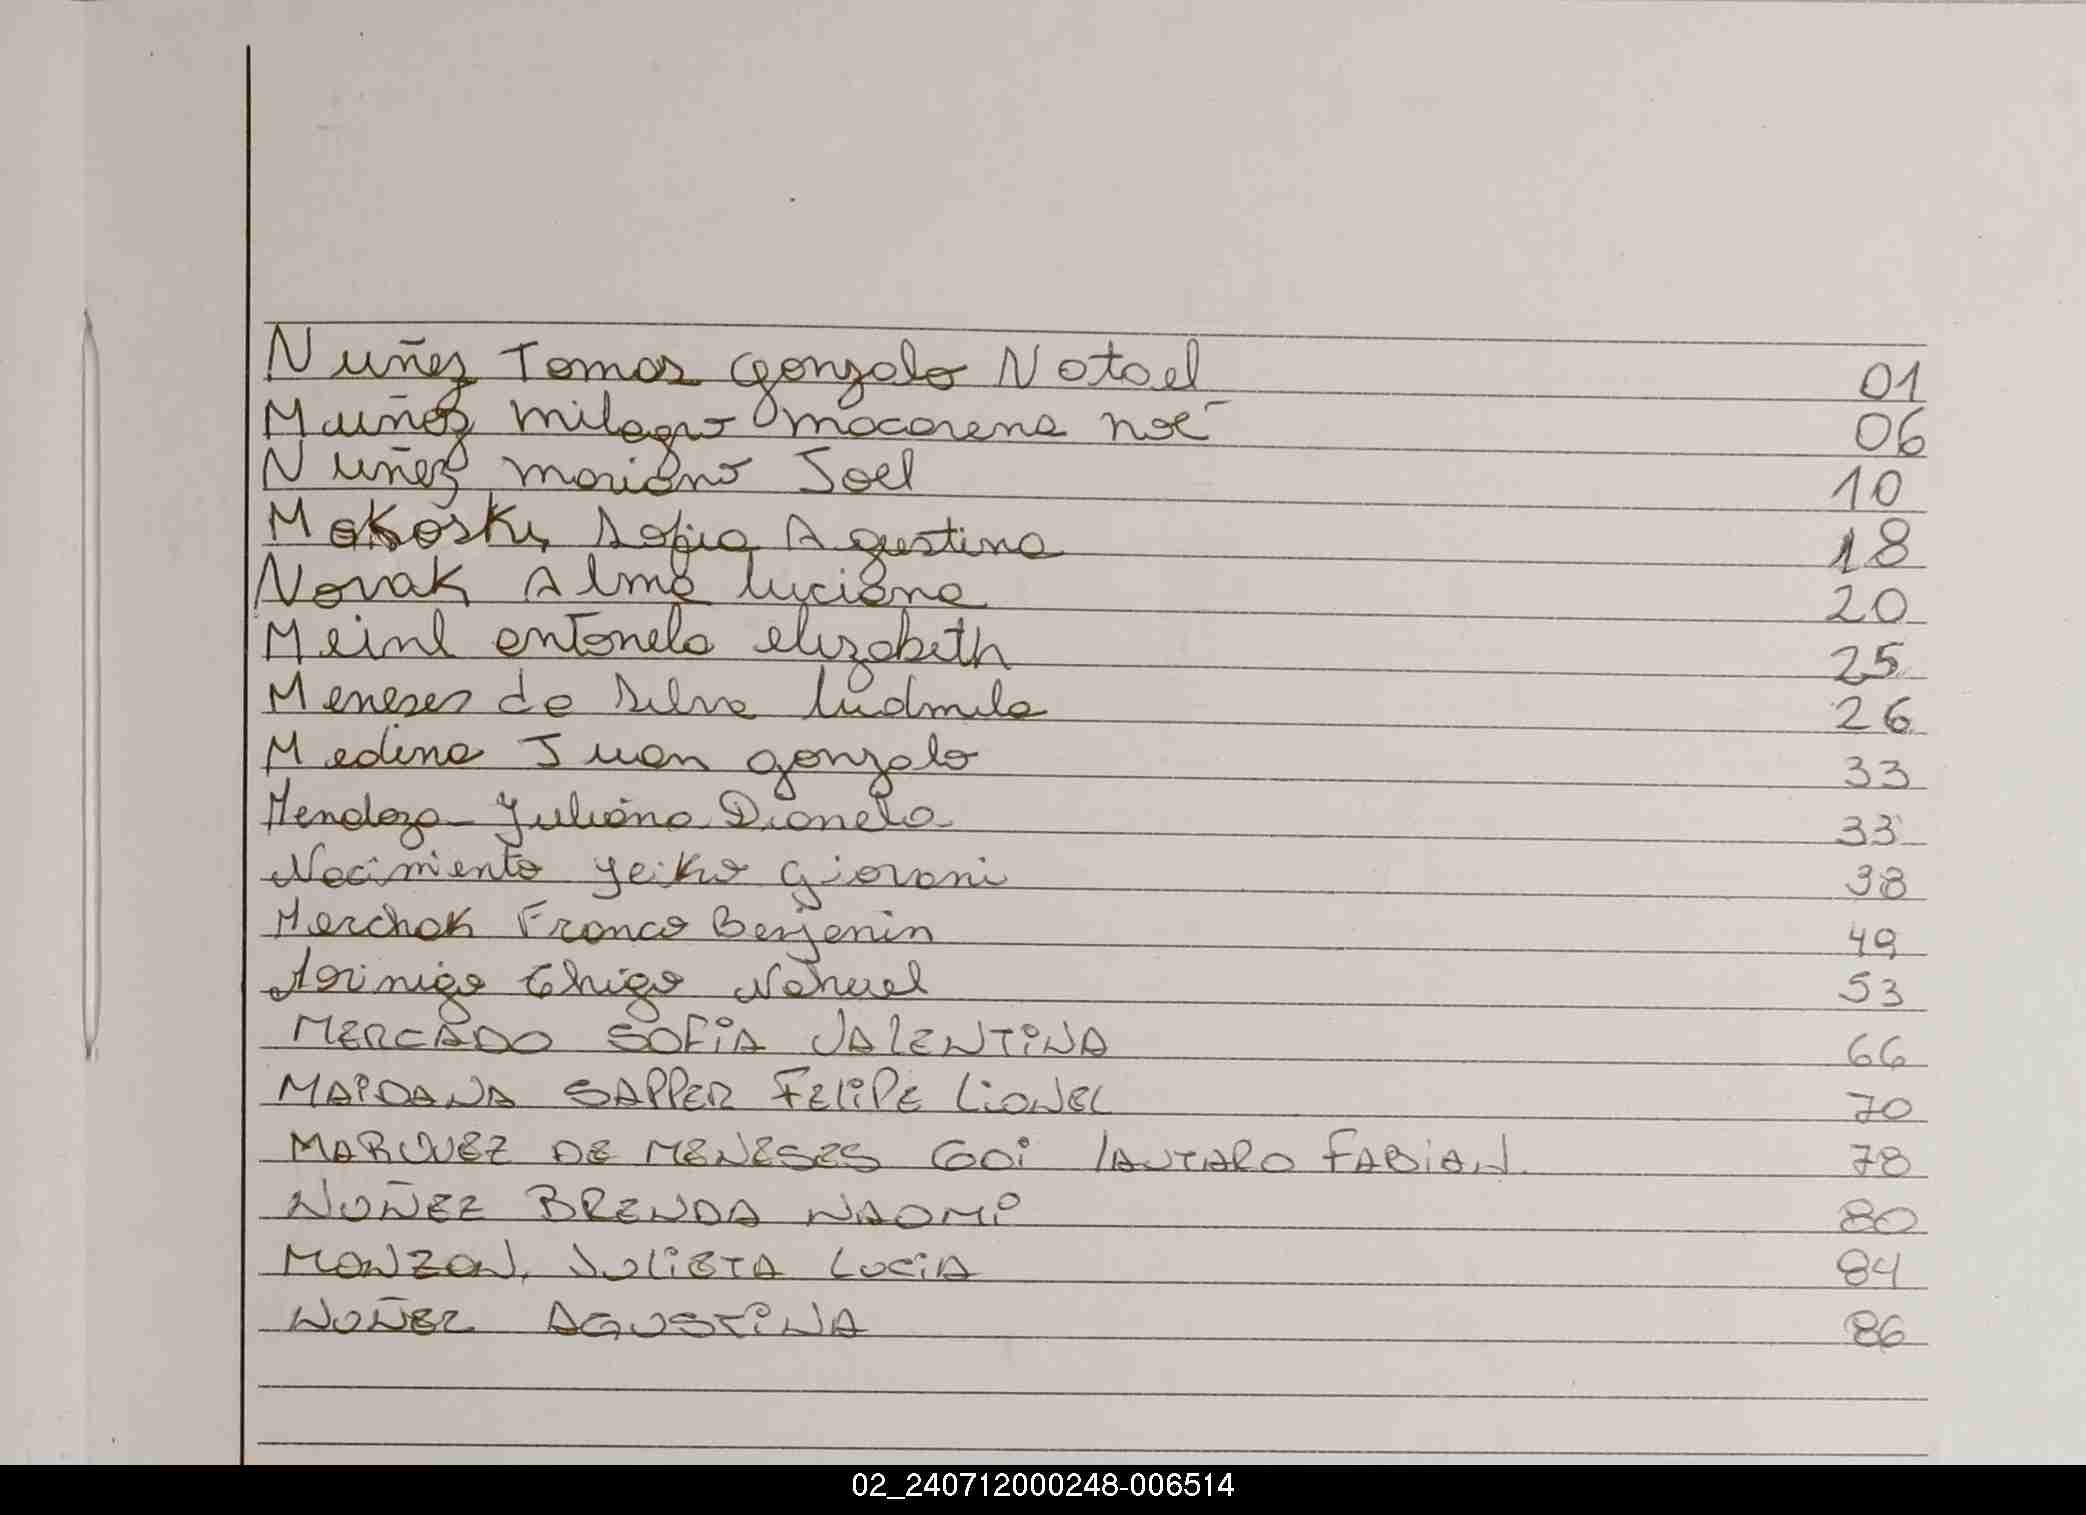 Nuñez Tomas Gonzalo Natael 01
Muñoz Milagro Macarena Noé 06
Nuñez Mariano Joel 10
Makoski Sofia Agustina 18
Novak Alma Luciana 20
Meinl Antonela Elizabeth 25
Meneses da Silva Ludmila 26
Medina Juan Gonzalo 33
Mendoza Juliana Dianela 33
Nacimiento Yeiko Giovani 38
Merchak Franco Benjamin 49
Nahuel 53
MERCADO SOFIA VALENTINA 66
MAIDANA SAPPER FELIPE LIONEL 70
MARQUEZ DE MENESES GOI LAUTARO FABIAN. 78
NUÑEZ BRENDA NAOMI 80
MONZON, JULIETA LUCIA 84
NUÑEZ AGUSTINA 86
02_240712000248-006514